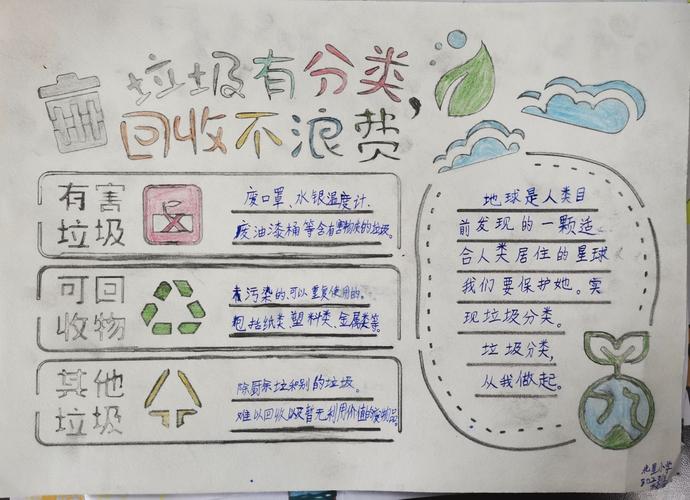 垃圾有分类,
回收不浪费
有害
垃圾
废口罩、水银温度计.
废油漆桶等含有害物质的垃圾。
可回
收物
污染的,可以重复使用的。
包括纸类,塑料类,金属类等。
其他
垃圾
的垃圾。
难以回收以及暂无利用价值的废物品。
地球是人类目
前发现的一颗适
合人类居住的星球
我们要保护她。实
现垃圾分类。
垃圾分类,
从我做起。
小学